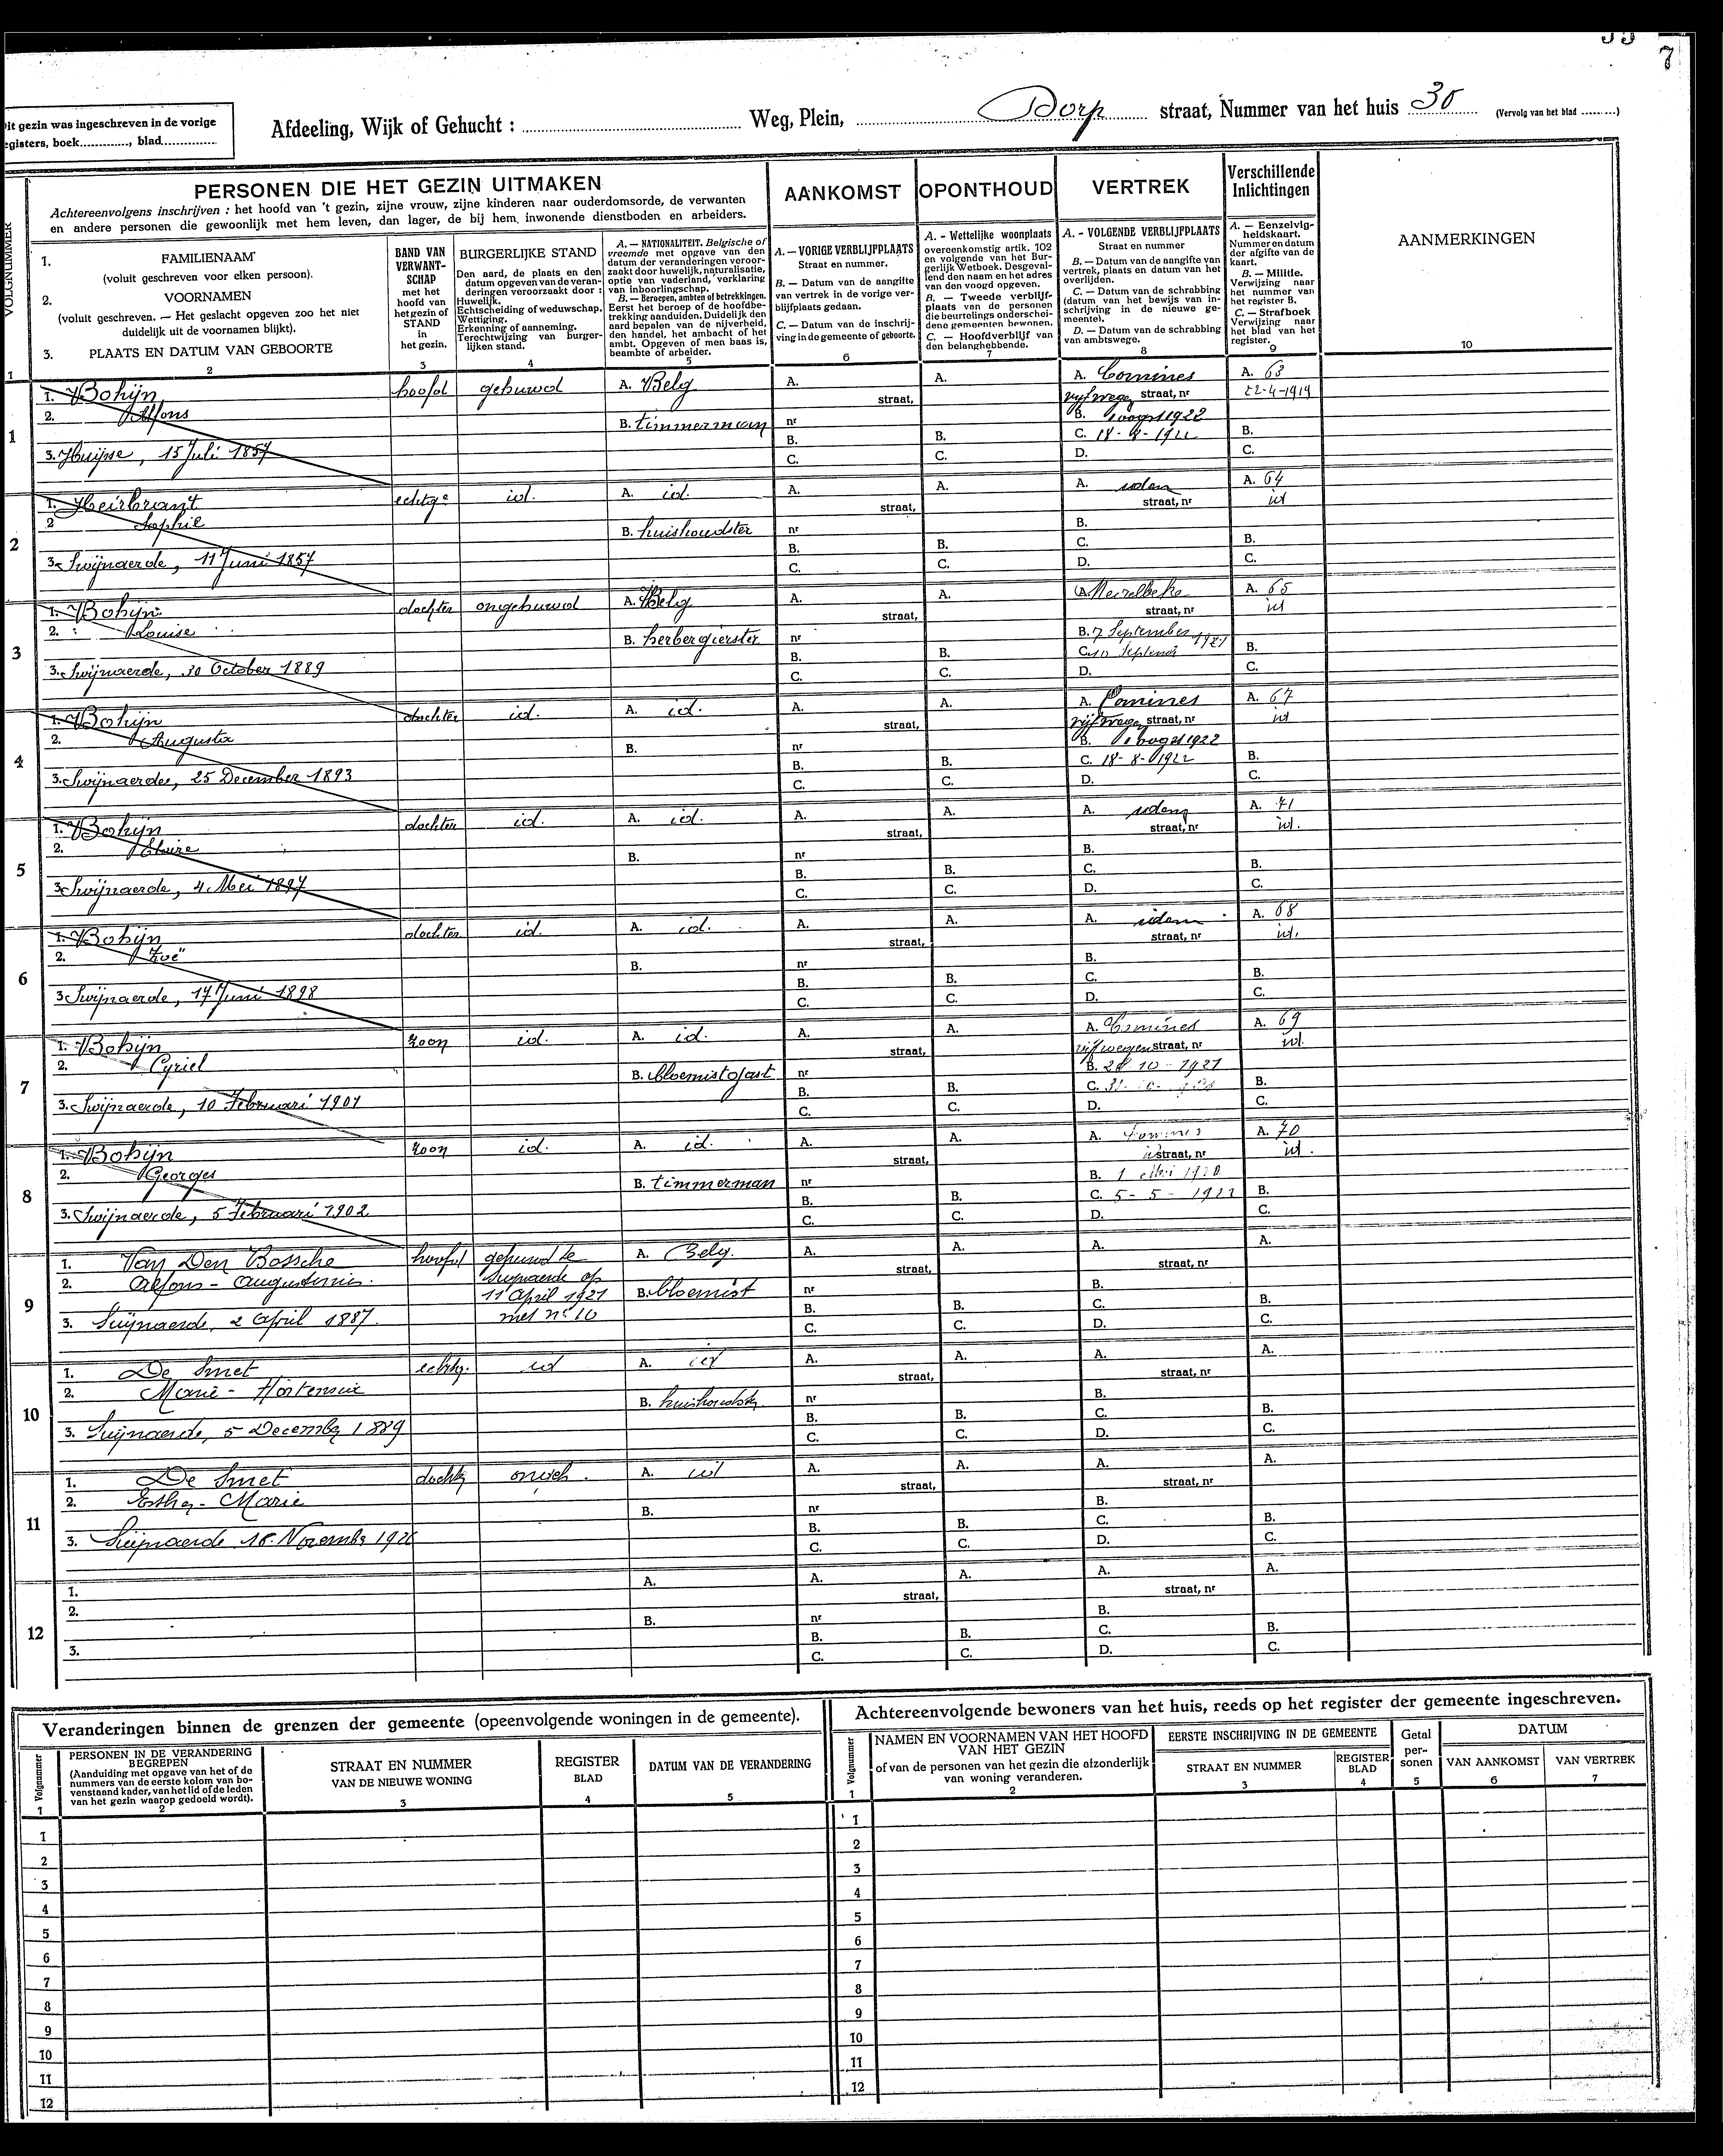 7
Dit gezin was ingeschreven in de vorige
registers, boek............, blad...............
Afdeeling, Wijk of Gehucht : ........ Weg, Plein, ........ Dorp straat, Nummer van het huis 30 (Vervolg van het blad .........)
PERSONEN DIE HET GEZIN UITMAKEN
Achtereenvolgens inschrijven : het hoofd van 't gezin, zijne vrouw, zijne kinderen naar ouderdomsorde, de verwanten
en andere personen die gewoonlijk met hem leven, dan lager, de bij hem inwonende dienstboden en arbeiders.
AANKOMST
OPONTHOUD
VERTREK
Verschillende
Inlichtingen
AANMERKINGEN
VOLGNUMMER
1. FAMILIENAAM
(voluit geschreven voor elken persoon).
2. VOORNAMEN
(voluit geschreven. — Het geslacht opgeven zoo het niet
duidelijk uit de voornamen blijkt).
3. PLAATS EN DATUM VAN GEBOORTE
BAND VAN
VERWANT-
SCHAP
met het
hoofd van
het gezin of
STAND
in
het gezin.
BURGERLIJKE STAND
Den aard, de plaats en den
datum opgeven van de veran-
deringen veroorzaakt door :
Huwelijk.
Echtscheiding of weduwschap.
Wettiging.
Erkenning of aanneming.
Terechtwijzing van burger-
lijken stand.
A. — NATIONALITEIT. Belgische of
vreemde met opgave van den
datum der veranderingen veroor-
zaakt door huwelijk, naturalisatie,
optie van vaderland, verklaring
van inboorlingschap.
B. — Beroepen, ambten of betrekkingen.
Eerst het beroep of de hoofdbe-
trekking aanduiden. Duidelijk den
aard bepalen van de nijverheid,
den handel, het ambacht of het
ambt. Opgeven of men baas is,
beambte of arbeider.
A. — VORIGE VERBLIJFPLAATS
Straat en nummer.
B. — Datum van de aangifte
van vertrek in de vorige ver-
blijfplaats gedaan.
C. — Datum van de inschrij-
ving in de gemeente of geboorte.
A. - Wettelijke woonplaats
overeenkomstig artik. 102
en volgende van het Bur-
gerlijk Wetboek. Desgeval-
lend den naam en het adres
van den voogd opgeven.
B. — Tweede verblijf-
plaats van de personen
die beurtelings onderschei-
dene gemeenten bewonen.
C. — Hoofdverblijf van
den belanghebbende.
A. - VOLGENDE VERBLIJFPLAATS
Straat en nummer
B. — Datum van de aangifte van
vertrek, plaats en datum van het
overlijden.
C. — Datum van de schrabbing
(datum van het bewijs van in-
schrijving in de nieuwe ge-
meente).
D. — Datum van de schrabbing
van ambtswege.
A. — Eenzelvig-
heidskaart.
Nummer en datum
der afgifte van de
kaart.
B. — Militie.
Verwijzing naar
het nummer van
het register B.
C. — Strafboek
Verwijzing naar
het blad van het
register.
1 2 3 4 5 6 7 8 9 10
1
1. Bohijn hoofd gehuwd A. Belg A. straat, A. A. Comines A. 63
2. Alfons vijfwegen straat, nr 22-4-1919
B. timmerman nr B. 1 oogst 1922
3. Huijsse, 15 Juli 1857 B. B. C. 18-8-1922 B.
C. C. D. C.
2
1. Heirbrant echtge id. A. id. A. straat, A. A. idem A. 64
2 Sophie straat, nr id
B. huishoudster nr B.
3. Swijnaerde, 11 Juni 1857 B. B. C. B.
C. C. D. C.
3
1. Bohijn dochter ongehuwd A. Belg A. straat, A. A. Meirelbeke A. 65
2. Louise straat, nr id
B. herbergierster nr B. 7 September 1921
3. Swijnaerde, 30 October 1889 B. B. C. 10 September B.
C. C. D. C.
4
1. Bohijn dochter id. A. id. A. straat, A. A. Comines A. 67
2. Augusta vijfwegen straat, nr id
B. nr B. 1 oogst 1922
3. Swijnaerde, 25 December 1893 B. B. C. 18-8-1922 B.
C. C. D. C.
5
1. Bohijn dochter id. A. id. A. straat, A. A. idem A. 71
2. Claire straat, nr id.
B. nr B.
3. Swijnaerde, 4 Mei 1897 B. B. C. B.
C. C. D. C.
6
1. Bohijn dochter id. A. id. A. straat, A. A. idem A. 68
2. Zoë straat, nr id.
B. nr B.
3. Swijnaerde, 17 Juni 1898 B. B. C. B.
C. C. D. C.
7
1. Bohijn zoon id. A. id. A. straat, A. A. Comines A. 69
2. Cyriel vijfwegen straat, nr id.
B. bloemistgast nr B. 10 - 1921
3. Swijnaerde, 10 Februari 1901 B. B. C. B.
C. C. D. C.
8
1. Bohijn zoon id. A. id. A. straat, A. A. Comines A. 70
2. Georges straat, nr id.
B. timmerman nr B. 1 Mei
3. Swijnaerde, 5 Februari 1902 B. B. C. 5-5- B.
C. C. D. C.
9
1. Van Den Bossche hoofd gehuwd te A. Belg. A. straat, A. A. straat, nr A.
2. Alfons - Augustinus. Swijnaerde op
11 April 1921 B. bloemist nr B.
3. Swijnaerde, 2 April 1887. met no 10 B. B. C. B.
C. C. D. C.
10
1. De Smet echtg. id A. id A. straat, A. A. straat, nr A.
2. Marie - Hortensia B. huishoudster nr B.
3. Swijnaerde, 5 December 1889 B. B. C. B.
C. C. D. C.
11
1. De Smet dochter A. id A. straat, A. A. straat, nr A.
2. Esther - Marie B. nr B.
3. Swijnaerde November B. B. C. B.
C. C. D. C.
12
1. A. A. straat, A. A. straat, nr A.
2. B. nr B.
3. B. B. C. B.
C. C. D. C.
Veranderingen binnen de grenzen der gemeente (opeenvolgende woningen in de gemeente).
Volgnummer
PERSONEN IN DE VERANDERING
BEGREPEN
(Aanduiding met opgave van het of de
nummers van de eerste kolom van bo-
venstaand kader, van het lid of de leden
van het gezin waarop gedoeld wordt).
STRAAT EN NUMMER
VAN DE NIEUWE WONING
REGISTER
BLAD
DATUM VAN DE VERANDERING
1 2 3 4 5
1
2
3
4
5
6
7
8
9
10
11
12
Achtereenvolgende bewoners van het huis, reeds op het register der gemeente ingeschreven.
Volgnummer
NAMEN EN VOORNAMEN VAN HET HOOFD
VAN HET GEZIN
of van de personen van het gezin die afzonderlijk
van woning veranderen.
EERSTE INSCHRIJVING IN DE GEMEENTE
STRAAT EN NUMMER
REGISTER
BLAD
Getal
per-
sonen
DATUM
VAN AANKOMST
VAN VERTREK
1 2 3 4 5 6 7
1
2
3
4
5
6
7
8
9
10
11
12